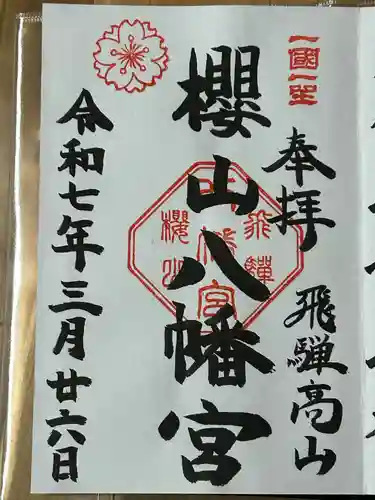 一國一社
奉拝
飛騨高山
櫻山八幡宮
飛騨
八幡宮
櫻山
令和七年三月廿六日